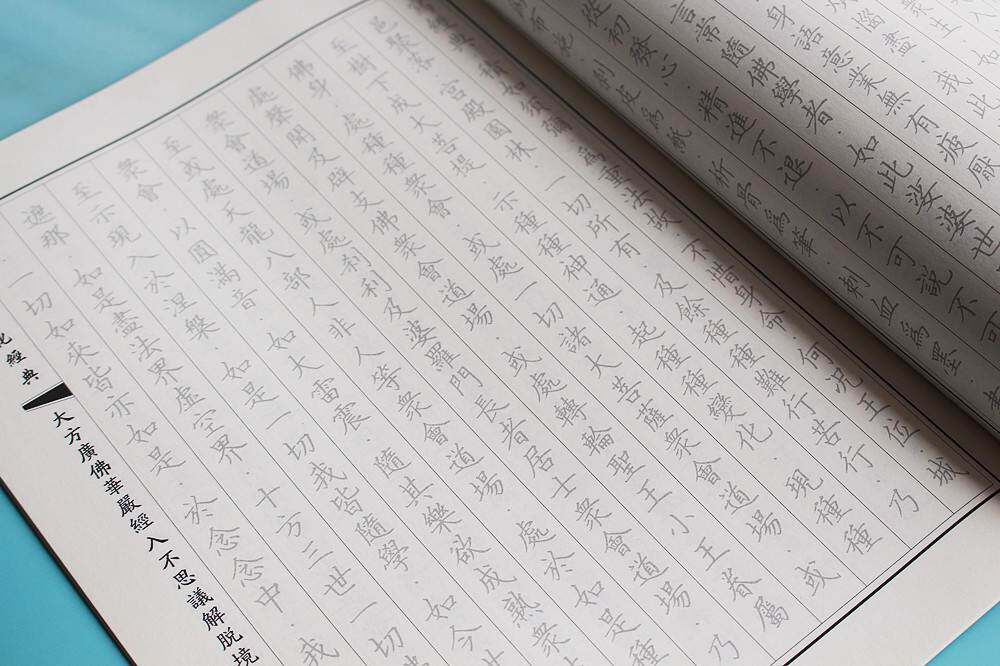 身語意業無有疲厭
言常隨佛學者 如此娑婆世
從初發心 精進不退 以不可說不可
布施 剝皮為紙 析骨為筆 刺血為墨 書
經典 積如須彌 為重法故 不惜身命 何況王位 城
邑聚落 宮殿園林 一切所有 及餘種種難行苦行 乃
至樹下成大菩提 示種種神通 起種種變化 現種種
佛身 處種種眾會 或處一切諸大菩薩眾會道場 或
處聲聞及辟支佛眾會道場 或處轉輪聖王小王眷屬
眾會道場 或處剎利及婆羅門長者居士眾會道場 乃
至或處天龍八部人非人等眾會道場 處於如是
眾會 以圓滿音 如大雷震 隨其樂欲成熟眾
至示現入於涅槃 如是一切 我皆隨學 如今
遮那 如是盡法界虛空界 十方三世一切
一切如來皆亦如是 於念念中 我
經典 大方廣佛華嚴經入不思議解脫境